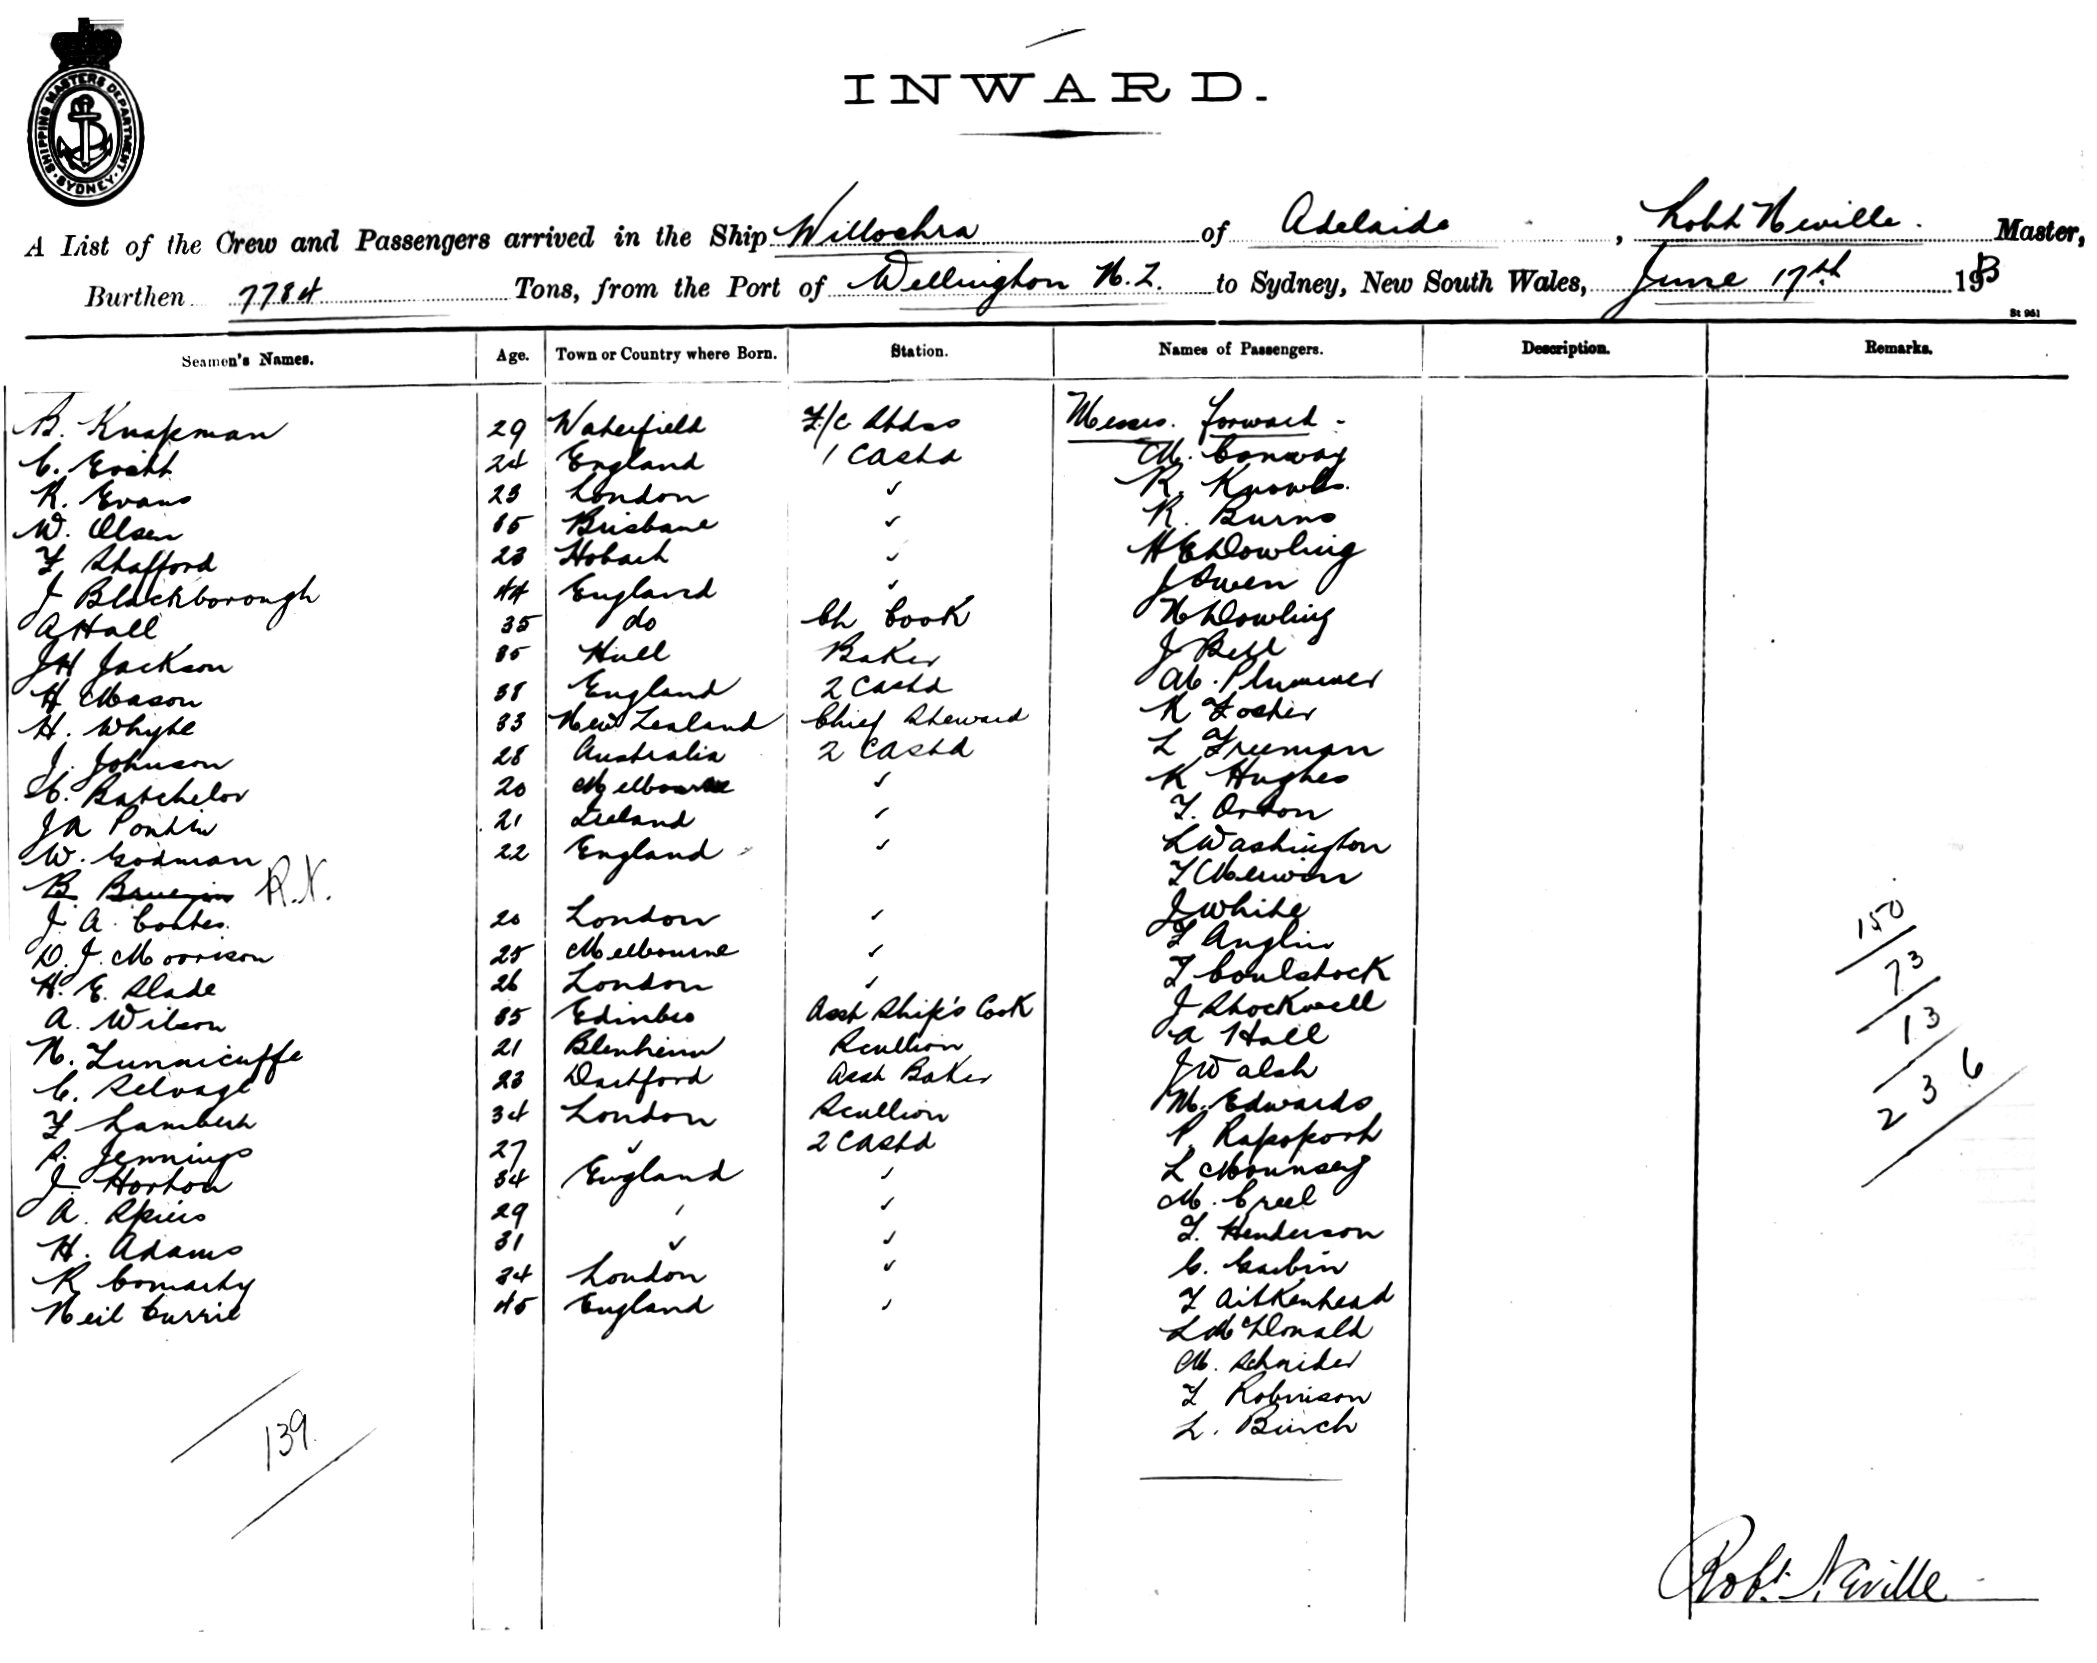 SHIPPING MASTERS DEPARTMENT · SYDNEY ·
INWARD.
A List of the Crew and Passengers arrived in the Ship Willochra of Adelaide, Robt Neville. Master,
Burthen 7784 Tons, from the Port of Wellington N.Z. to Sydney, New South Wales, June 17th 1913
St 961
Seamen's Names. Age. Town or Country where Born. Station. Names of Passengers. Description. Remarks.
B. Knapman 29 Waterfield F/C Stdss Messrs. forward -
C. 24 England 1 CAStd M. Conway
R. Evans 23 London " R. Knowles.
W. Olsen 35 Brisbane " R. Burns
F Stafford 23 Hobart " H E Dowling
J Blackborough 44 England " J Owen
A Hall 35 do Ch Cook N Dowling
J H Jackson 35 Hull Baker J Bell
H Mason 38 England 2 CAStd M. Plummer
H. Whyte 33 New Zealand Chief Steward R Foster
J. Johnson 28 Australia 2 CAStd L Freeman
C. Batchelor 20 Melbourne " K Hughes
J A Pontin 21 Ireland " F. Orton
W. Godman 22 England " L Washington
B. R.N. F Merwin
J. A. Coates. 20 London " J White
D. J. Morrison 25 Melbourne " F Anglin
H. E. Slade 26 London " F Coulstock
A. Wilson 35 Edinbro Asst Ship's Cook J Stockwell
N. Tunnicuffe 21 Blenheim Scullion A Hall
C. Selvage 23 Dartford Asst Baker J Walsh
F Lambert 34 London Scullion M. Edwards
S. Jennings 27 " 2 CAStd P. Rapoport
J. Horton 34 England " L Mounsey
A. Spiers 29 " " M. Creel
H. Adams 31 " " F. Henderson
R Comarty 34 London " C. Garbin
Neil Currie 45 England " F Aitkenhead
L McDonald
M. Schneider
F Robinson
L. Burch
150
73
13
236
139.
Robt. Neville